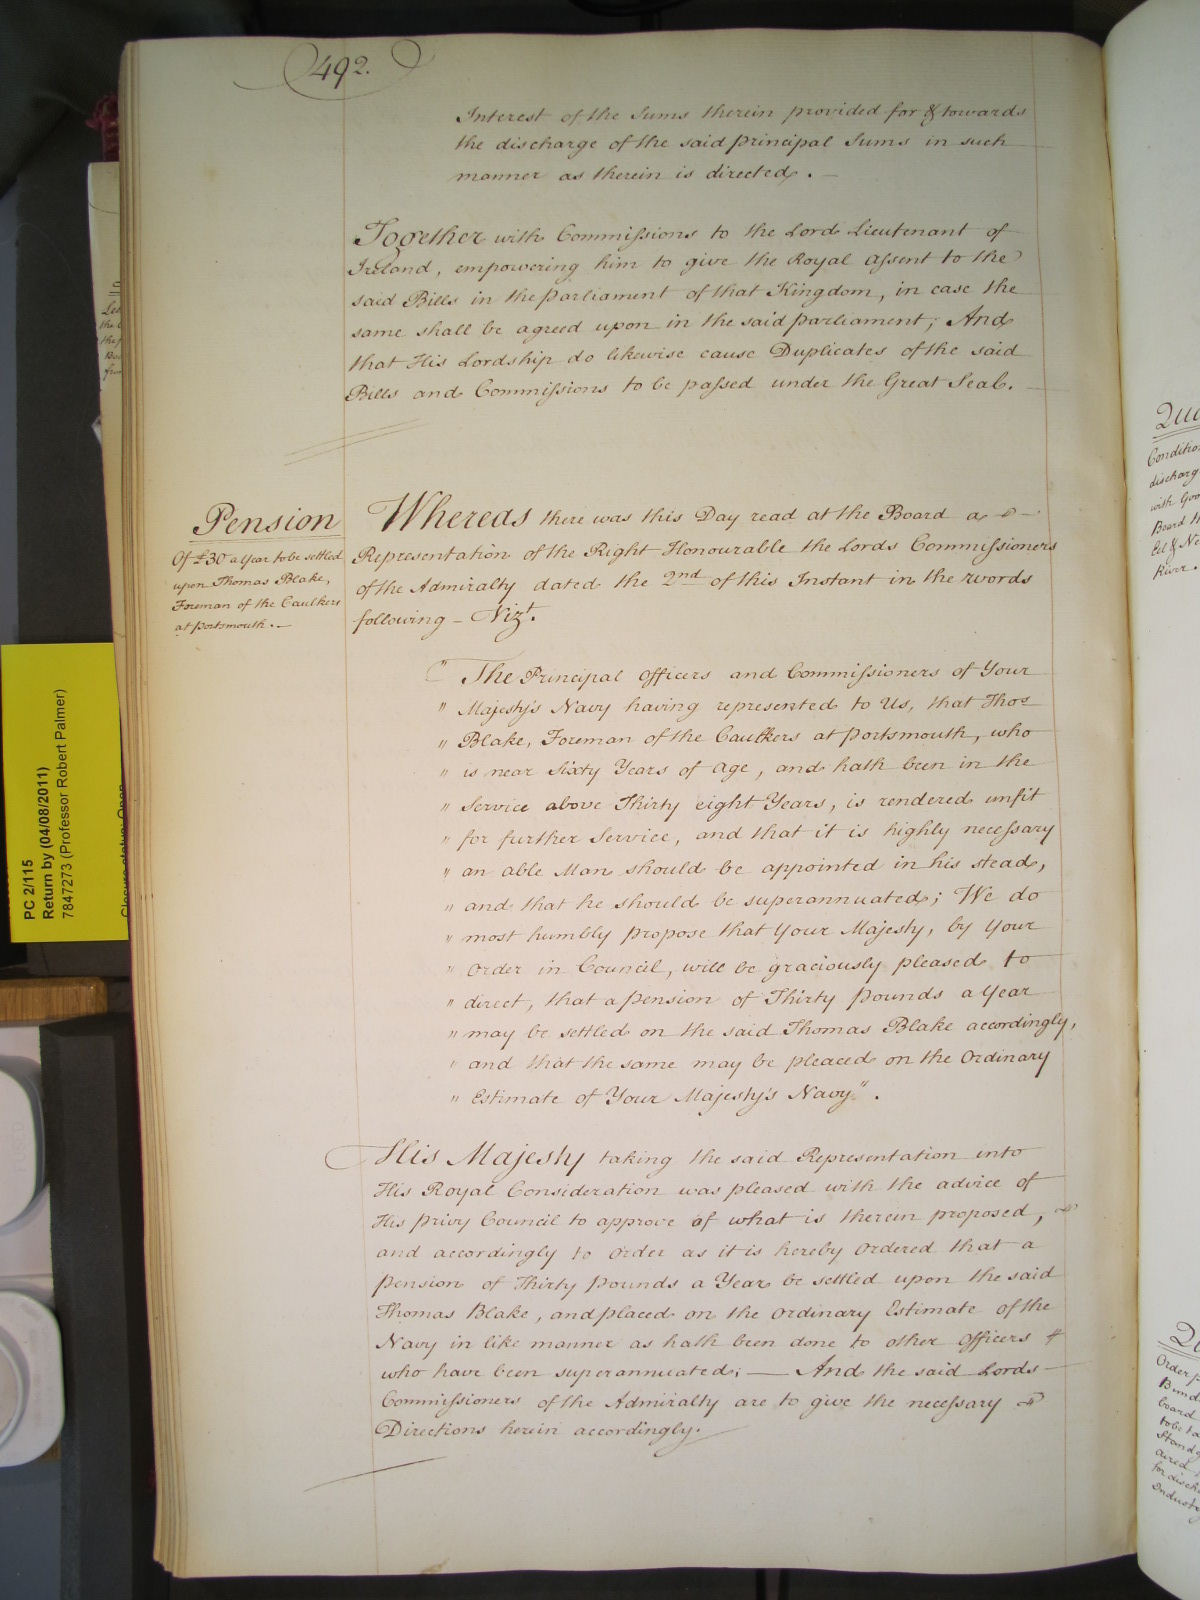 492.
Interest of the Sums therein provided for & towards
the discharge of the said principal Sums in such
manner as therein is directed. —
Together with Commissions to the Lord Lieutenant of
Ireland, empowering him to give the Royal Assent to the
said Bills in the Parliament of that Kingdom, in case the
same shall be agreed upon in the said Parliament; And
that His Lordship do likewise cause Duplicates of the said
Bills and Commissions to be passed under the Great Seal.
Pension
Of £30 a Year to be settled
upon Thomas Blake,
Foreman of the Caulkers
at Portsmouth. —
Whereas there was this Day read at the Board a
Representation of the Right Honourable the Lords Commissioners
of the Admiralty dated the 2nd of this Instant in the words
following — Vizt.
" The Principal Officers and Commissioners of Your
" Majesty's Navy having represented to Us, that Thos
" Blake, Foreman of the Caulkers at Portsmouth, who
" is near Sixty Years of Age, and hath been in the
" Service above Thirty eight Years, is rendered unfit
" for further Service, and that it is highly necessary
" an able Man should be appointed in his stead,
" and that he should be superannuated; We do
" most humbly propose that Your Majesty, by Your
" Order in Council, will be graciously pleased to
" direct, that a Pension of Thirty Pounds a Year
" may be settled on the said Thomas Blake accordingly,
" and that the same may be pleaced on the Ordinary
" Estimate of Your Majesty's Navy".
His Majesty taking the said Representation into
His Royal Consideration was pleased with the advice of
His Privy Council to approve of what is therein proposed,
and accordingly to Order as it is hereby Ordered that a
Pension of Thirty Pounds a Year be settled upon the said
Thomas Blake, and placed on the Ordinary Estimate of the
Navy in like manner as hath been done to other Officers
who have been superannuated; — And the said Lords
Commissioners of the Admiralty are to give the necessary
Directions herein accordingly.
PC 2/115
Return by (04/08/2011)
7847273 (Professor Robert Palmer)
Closure status: Open
Conditio
discharg
with Goo
Board
River.
Order
board